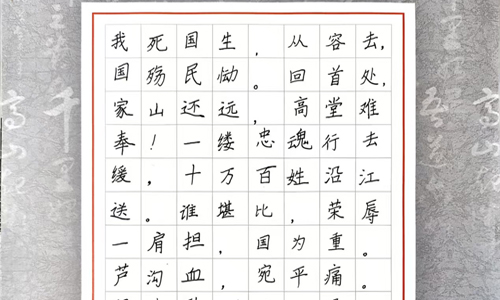 我死国生，从容去，
国殇民恸。回首处，
家山还远，高堂难
奉！一缕忠魂行去
缓，十万百姓沿江
送。谁堪比，荣辱
一肩担，国为重。
芦沟血，宛平痛。